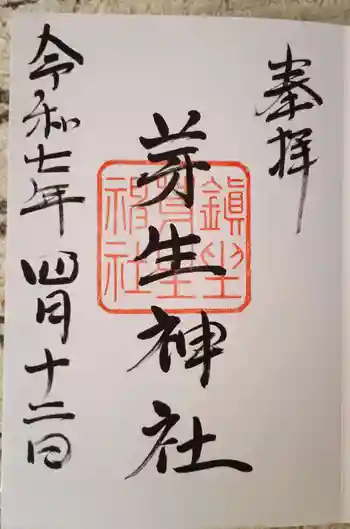 奉拝
芽生神社
鎮坐
神社
令和七年四月十二日